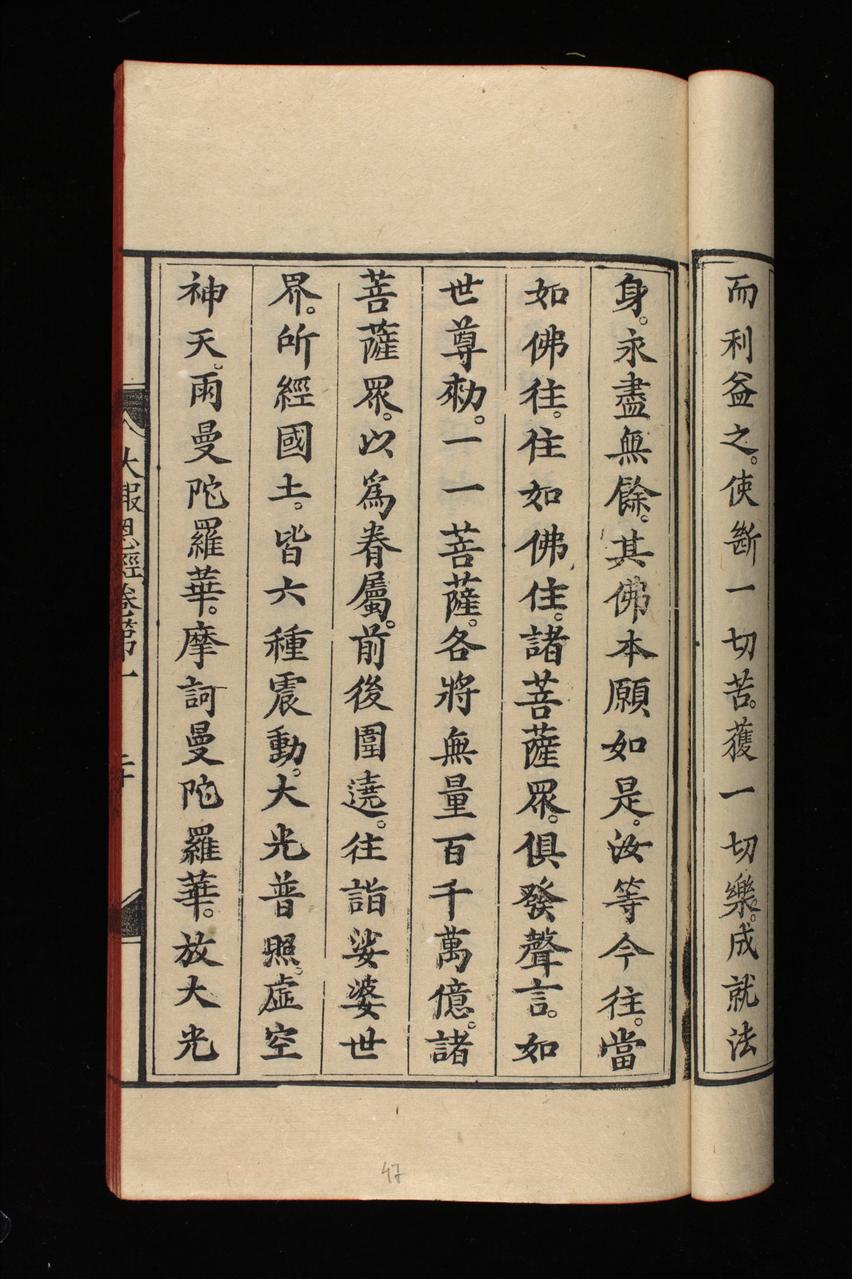 而利益之。使斷一切苦。獲一切樂。成就法
身。永盡無餘。其佛本願如是。汝等今往。當
如佛往。住如佛住。諸菩薩眾。俱發聲言。如
世尊勑。一一菩薩。各將無量百千萬億。諸
菩薩眾。以為眷屬。前後圍遶。往詣娑婆世
界。所經國土。皆六種震動。大光普照。虛空
神天。雨曼陀羅華。摩訶曼陀羅華。放大光
大報恩經卷第一
二十
47